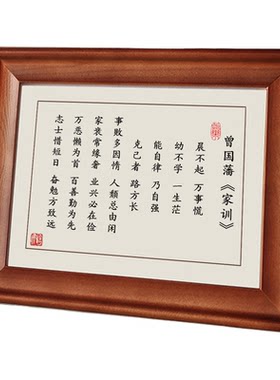 曾国藩《家训》
晨不起 万事慌
幼不学 一生茫
能自律 乃自强
克己者 路方长
事败多因惰 人類总由闲
家衰常缘奢 业兴必在俭
万恶懒为首 百善勤为先
志士惜短日 奋勉方致远